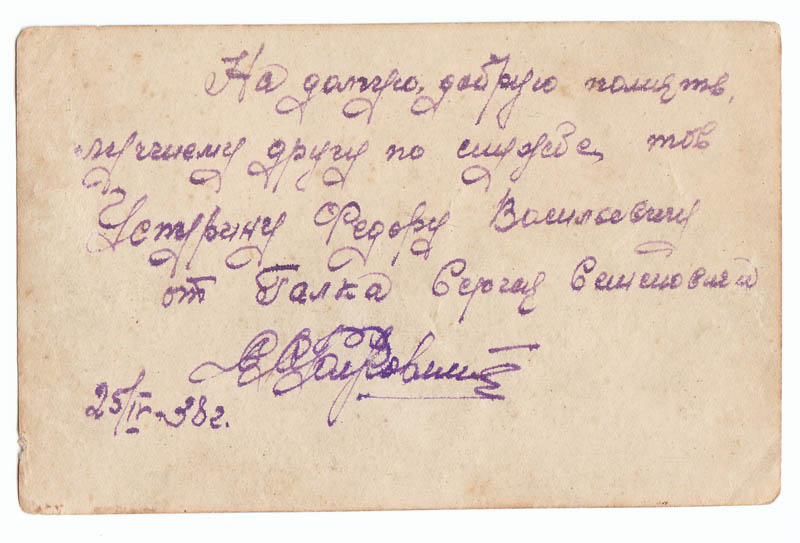 На долгую, добрую память,
лучшему другу по службе, тов
Устурину Федору Васильевичу
от Галка Сергея Семеновича
25/IV-38г.